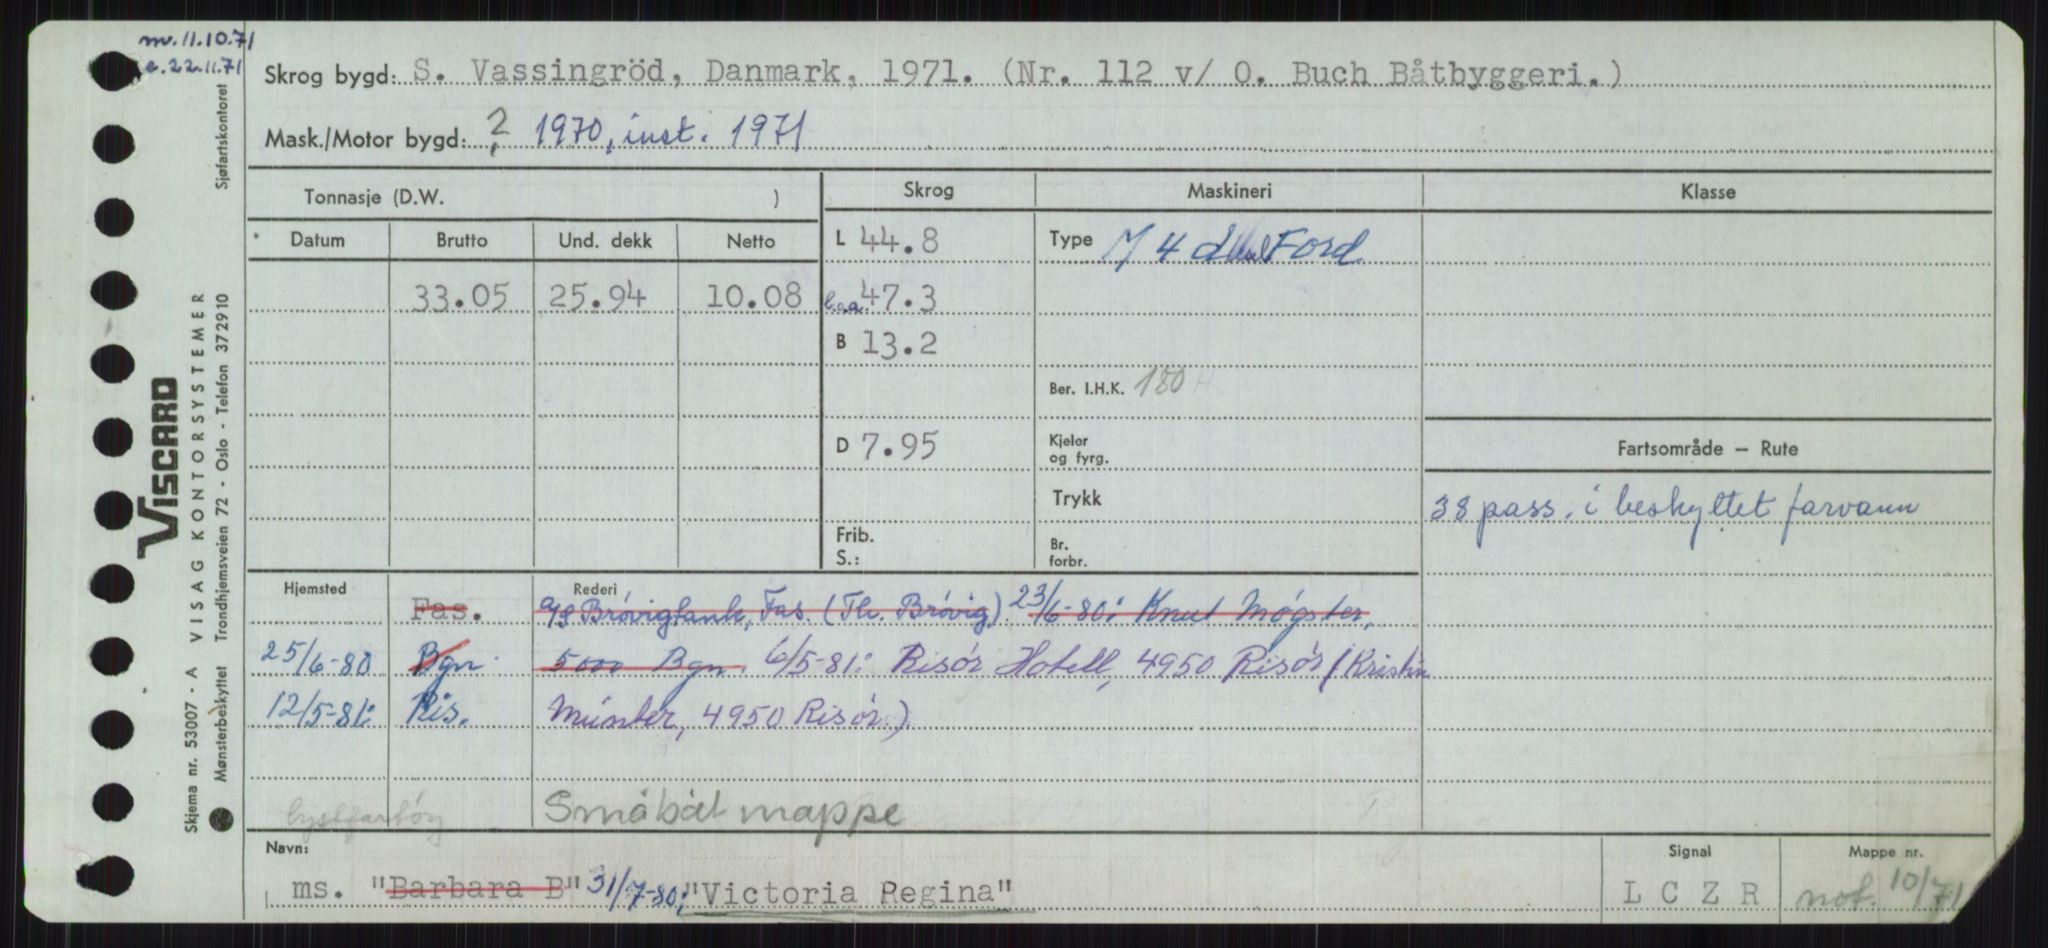 m. 11.10.71
e. 22.11.71
Skrog bygd: S. Vassingröd, Danmark, 1971. (Nr. 112 v/ O. Buch Båtbyggeri.)
Mask./Motor bygd: ?, 1970, inst. 1971
Tonnasje (D.W. )
Datum Brutto Und. dekk Netto
33.05 25.94 10.08
Skrog
L 44.8
l.o.a. 47.3
B 13.2
D 7.95
Frib.
S.:
Maskineri
Type M 4 Ford
Ber. I.H.K. 180 H
Kjeler
og fyrg.
Trykk
Br.
forbr.
Klasse
Fartsområde — Rute
38 pass. i beskyttet farvann
Hjemsted Rederi
Fas. A/S Brøvigtank, Fas. (Th. Brøvig) 23/6-80: Knut Møgster,
25/6-80 Bgn. 5000 Bgn. 6/5-81: Risør Hotell, 4950 Risør (Kristin
12/5-81: Ris. Münter, 4950 Risør.)
lystfartøy Småbåt mappe
Navn: Signal Mappe nr.
ms. "Barbara B" 31/7-80: "Victoria Regina" L C Z R not. 10/71
VISCARD
Skjema nr. 53007 - A VISAG KONTORSYSTEMER
Mønsterbeskyttet Trondhjemsveien 72 - Oslo - Telefon 372910 Sjøfartskontoret